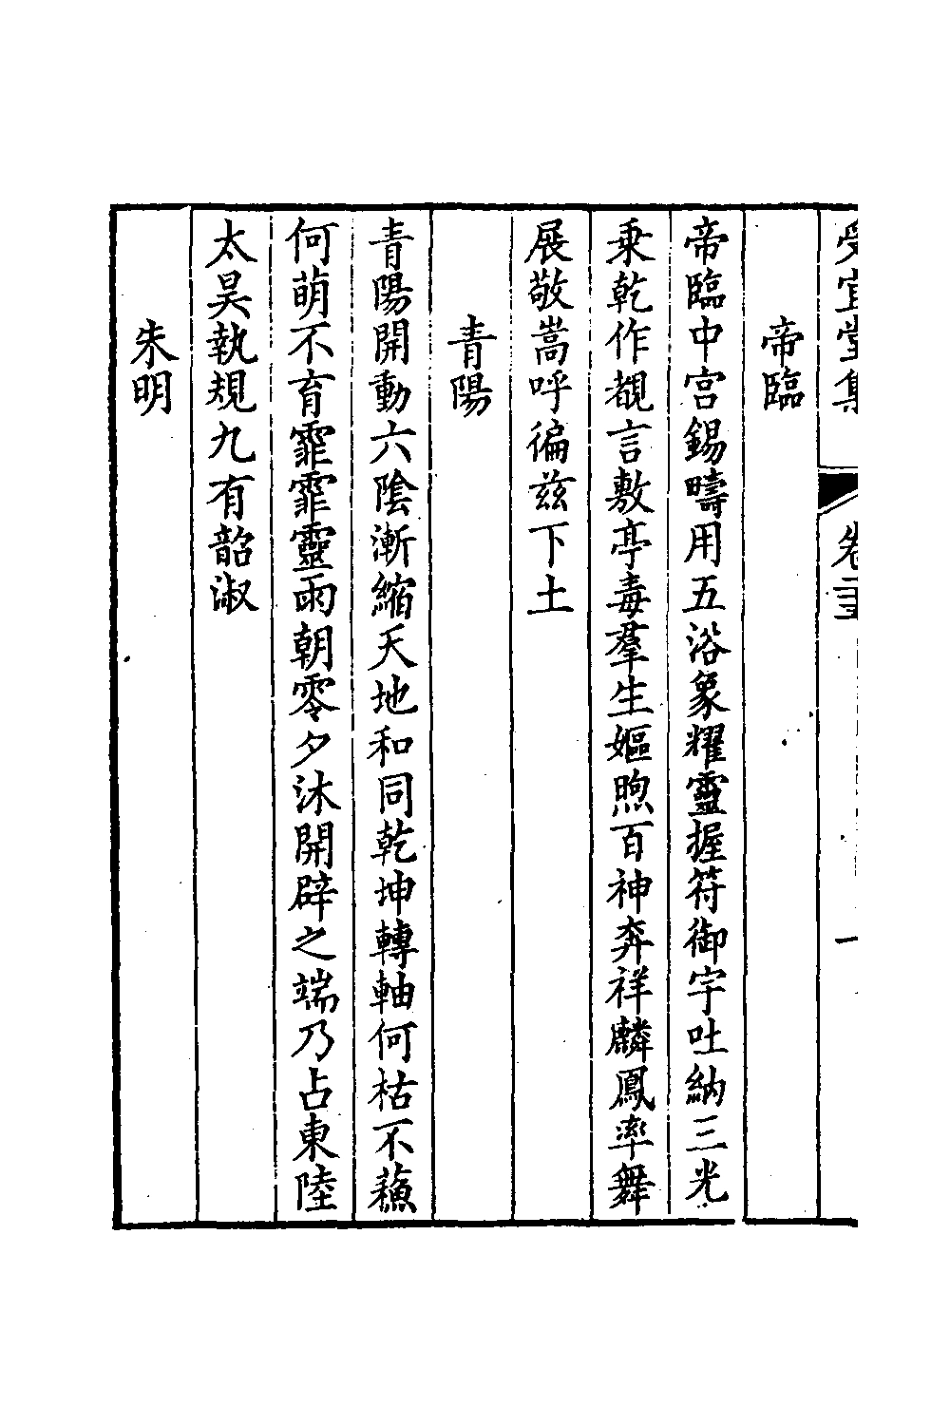 受宜堂集 卷 一
帝臨
帝臨中宫錫疇用五浴象耀靈握符御宇吐納三光
乘乾作覩言敷亭毒羣生嫗煦百神奔祥麟鳳率舞
展敬嵩呼徧兹下土
青陽
青陽開動六隂漸縮天地和同乾坤轉軸何枯不蘓
何萌不育霏霏靈雨朝零夕沐開辟之端乃占東陸
太昊執規九有韶淑
朱明